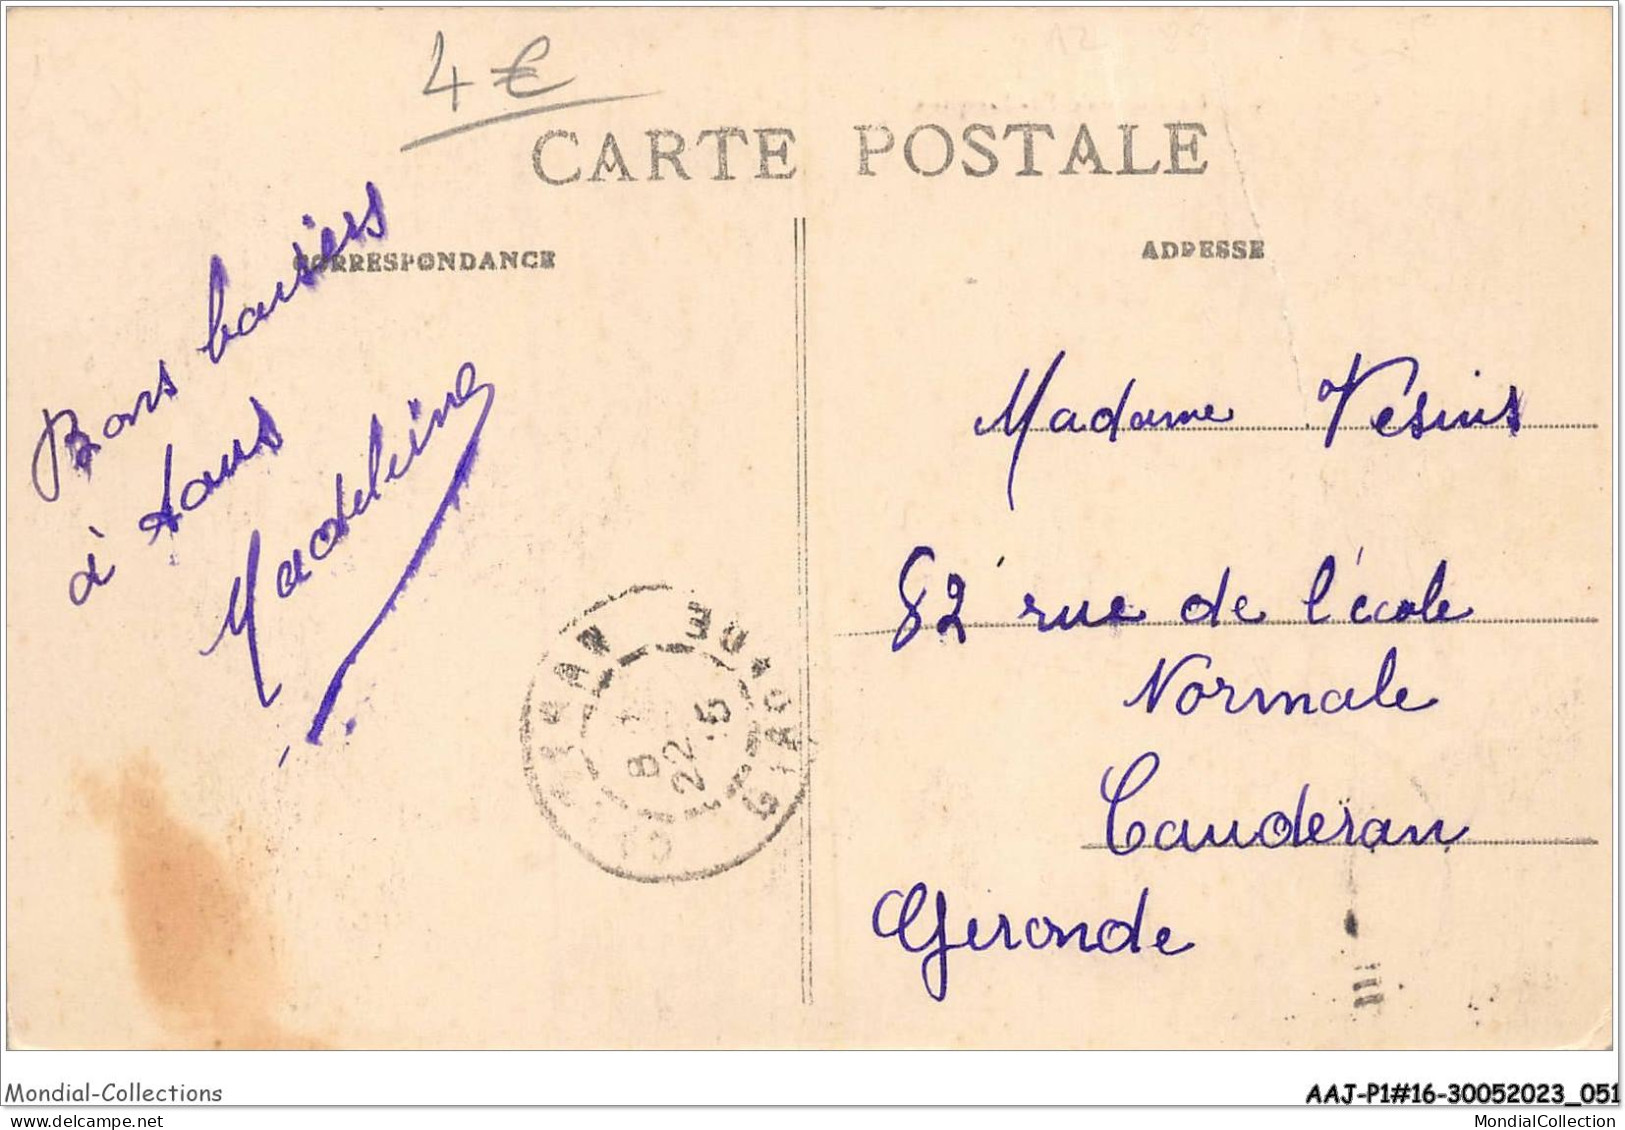 4 €
CARTE POSTALE
CORRESPONDANCE
ADRESSE
Bons baisers
à tous
Madeline
Madame Vesins
82 rue de l'école
Normale
Cauderan
Gironde
CAUDERAN
GIRONDE
8
22 - 5
Mondial-Collections
AAJ-P1#16-30052023_051
MondialCollection